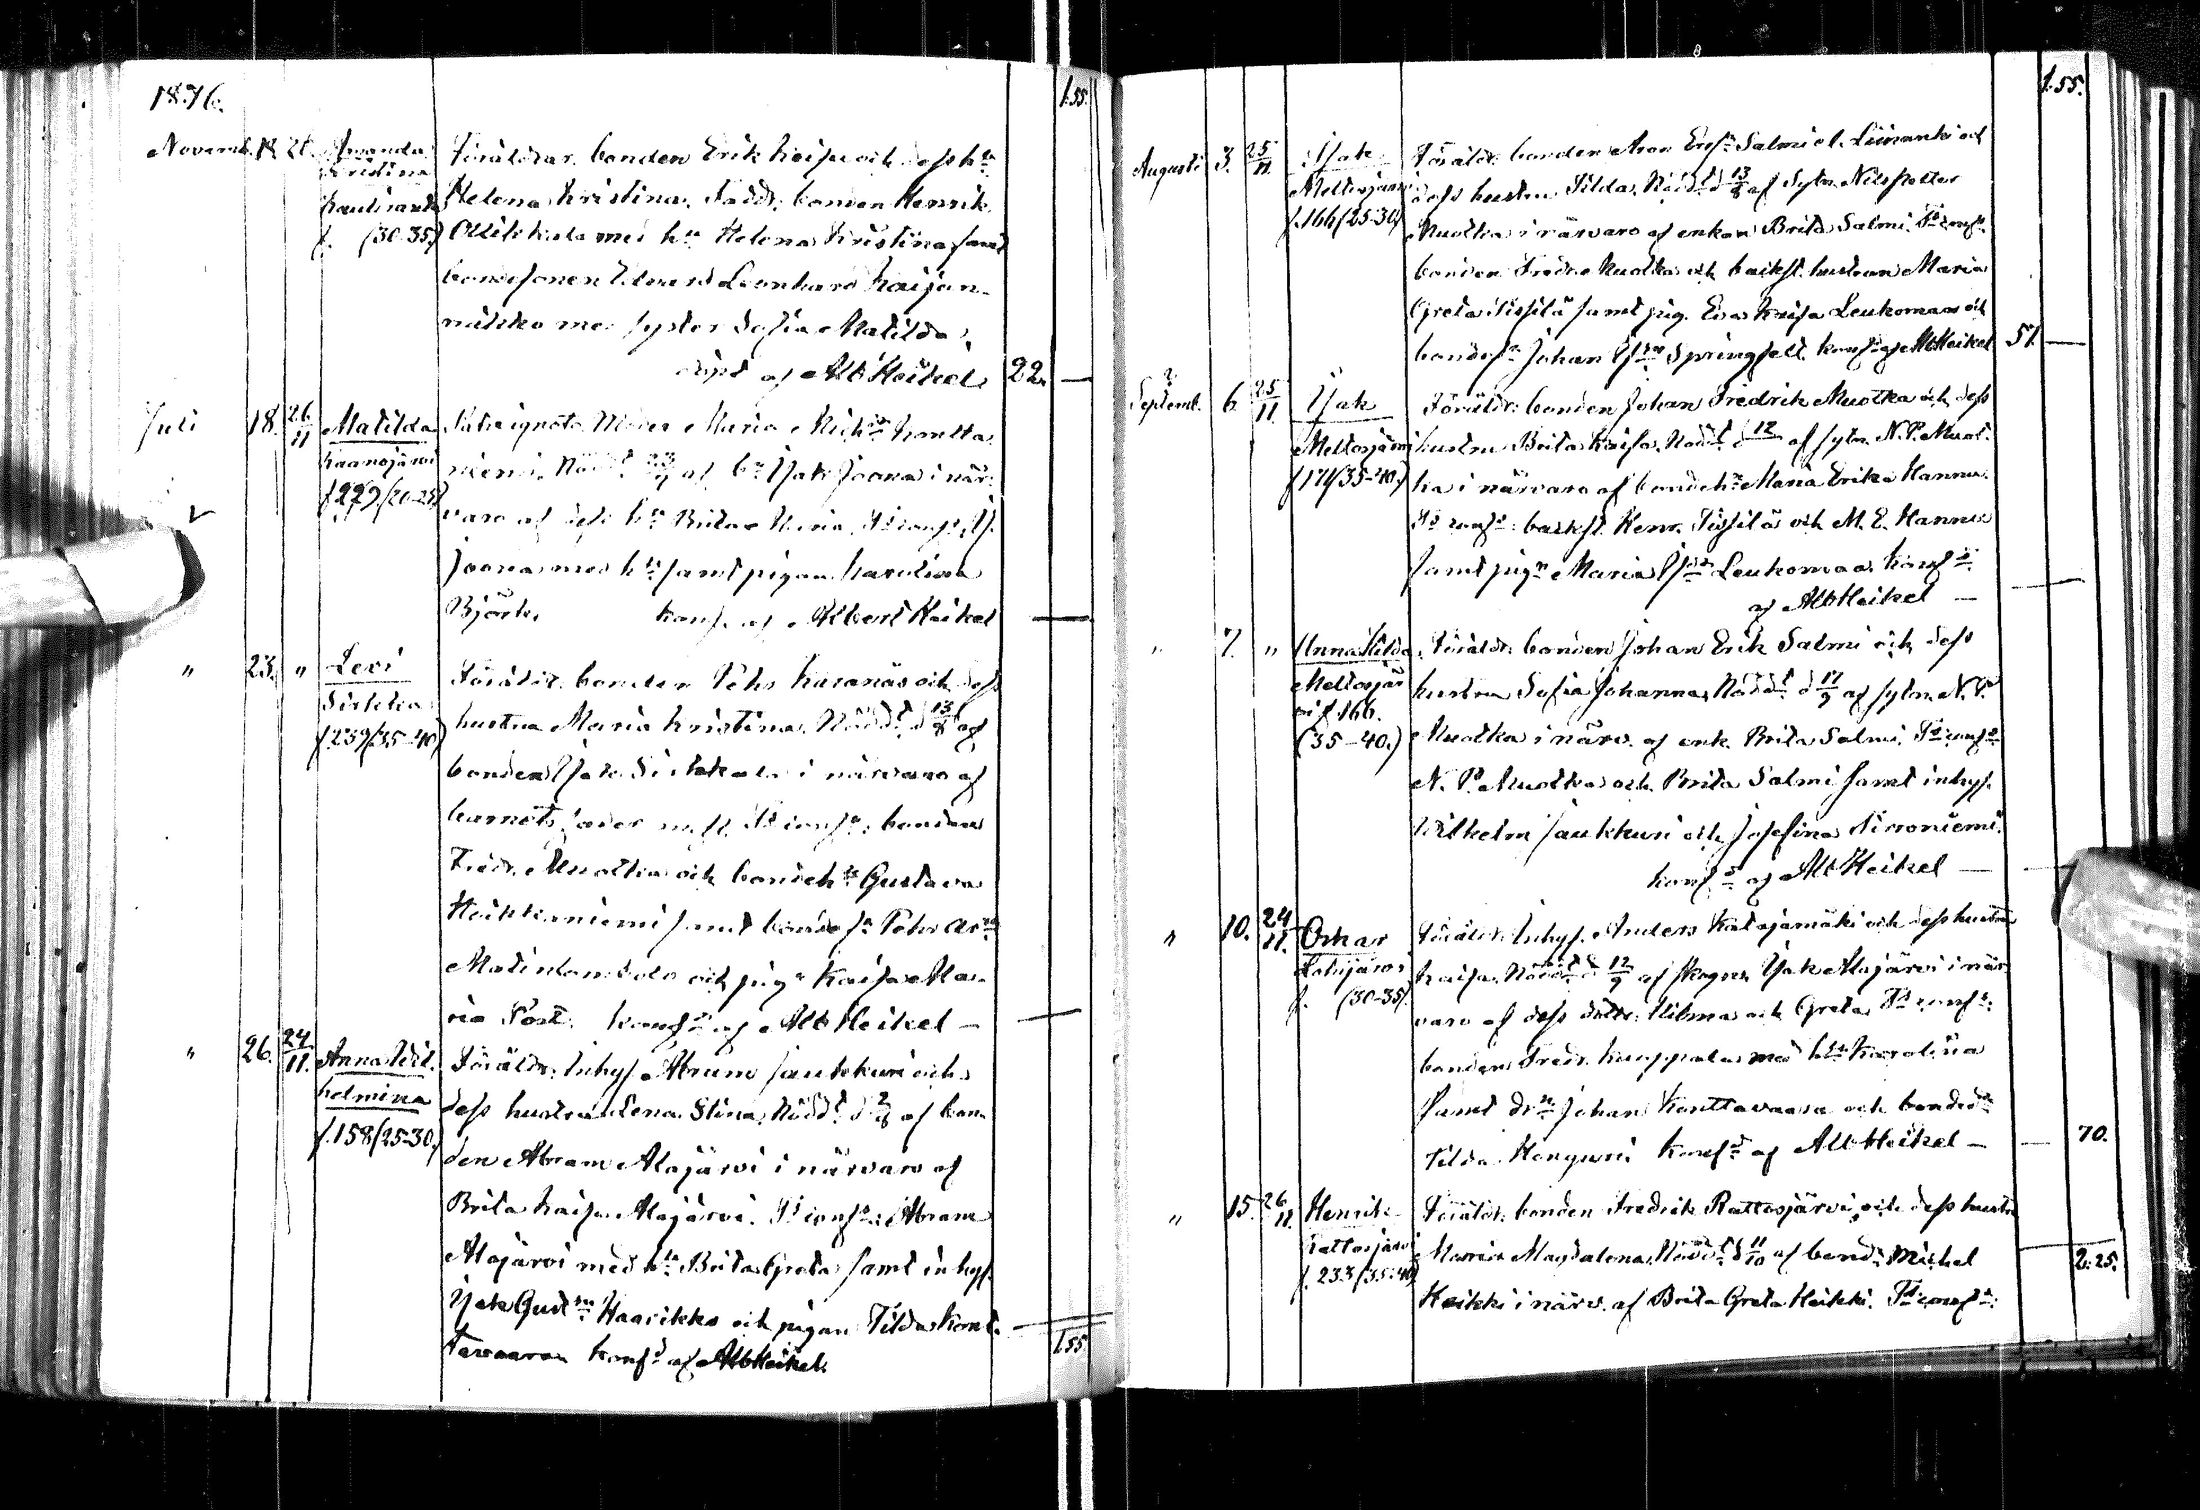 1876.
1.55.
Novemb. 18 21 Amanda Kristina Kaulirant f. (30-35)
Föräldrar bonden Erik Kaisu och dess h:u
Helena Kristina. Faddr. bonden Henrik
Ollikkala med h:u Helena Kristina samt
bondesonen Edvard Leonhard Kaijan-
mikko med syster Sofia Matilda,
döpt af Alb Heikel 22. —
Juli 18. 26/11 Matilda Kaanosjärvi f. 279 (20-25)
Pater ignotus Moder Maria
niemi. Nöddt 23/7 af b:n Isak Joona i när-
varo af dess h:u Brita Maria. Ts conf:s, Is.
Joona med h:u samt pigan Karolina
Björk. konf. af Albert Heikel —
" 23. " Levi Sirkka f. 259 (35-40)
Föräldr. bonden Pehr Kuranäs och dess
hustru Maria Kristina. Nöddt d 13/8 af
bonden Isak Sirkkala i närvaro af
barnets fader m. fl. Ts conf:s: bonden
Fredr. Muotka och bondeh:u Gustava
Heikkaniemi samt bondes:n Pehr Ar:n
Matinlompolo och pig:n Kaisa Ma-
ria Post. konf:d af Alb Heikel —
" 26. 24/11. Anna Wilhelmina f. 158 (25-30.)
Föräldr: Inhys. Abram Jaukkuri och
dess hustru Lena Stina. Nöddt d 2/8 af bon-
den Abram Alajärvi i närvaro af
Brita Kaisa Alajärvi. Ts conf:s: Abram
Alajärvi med h:u Brita Greta samt inhys.
Isak Gust:n Haarikko och pigan Tilda Kont-
tavaara konf:d af Alb Heikel. 1.55
1.55.
Augusti 3. 25/11. Isak Meltosjärvi f. 166 (25-30)
Föräldr. bonden Aron Ers:n Salmi el. Liinanki och
dess hustru Tilda. Nöddt d 13/8 af Sytn. Nils Petter
Muotka i närvaro af enkan Brita Salmi. Ts conf:s
bonden Fredr. Muotka och backst. hustrun Maria
Greta Tissilä samt pig. Eva Kaisa Leukomaa och
bondes:n Johan Is:n Springfelt konf:d af Alb Heikel 51. —
Septemb. 6. 25/11 Isak Meltosjärvi f. 171 (35-40.)
Föräldr: bonden Johan Fredrik Muotka och dess
hustru Brita Kaisa. Nöddt d 12 af sytn. N. P. Muot-
ka i närvaro af bondeh:u Maria Erika Hannu.
Ts conf:s: backst. Henr. Tissilä och M. E. Hannu
samt pig:n Maria Is:dr Leukomaa. Konf:d
af Alb Heikel —
" 7. " Anna Hilda Meltosjärvi f. 166. (35-40.)
Föräldr: bonden Johan Erik Salmi och dess
hustru Sofia Johanna. Nöddt d 17/9 af sytn. N. P.
Muotka i närv. af enk. Brita Salmi. Ts conf:s
N. P. Muotka och Brita Salmi samt inhys.
Wilhelm Jaukkuri och Josefina Nironiemi.
konf:d af Alb Heikel —
" 10. 24/11. Oskar Lohijärvi f. (30-35).
Föräldr: Inhys. Anders Katajamäki och dess hustru
Kaisa. Nöddt d 12/9 af Isak Alajärvi i när-
varo af dess döttr. Hilma och Greta. Ts conf:s:
bonden Fredr. Kauppala med h:u Karolina
samt dr:n Johan Konttavaara och bonded:r
Tilda Hangasni konf:d af Alb Heikel — — 70.
" 15. 26/11. Henrik Rattosjärvi f. 233 (35-40)
Föräldr: bonden Fredrik Rattosjärvi och dess hustru
Maria Magdalena. Nöddt d 11/10 af bond: Michel
Heikki i närv. af Brita Greta Heikki. Ts conf:s:
2.25.